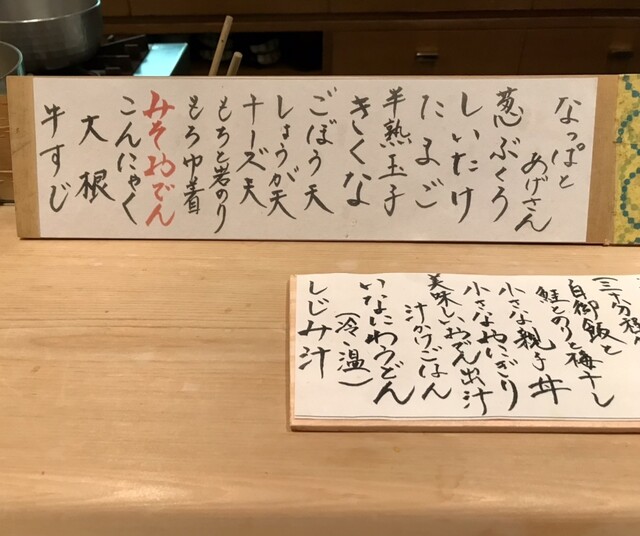 なっぱと
あげさん
葱ぶくろ
しいたけ
たまご
半熟玉子
きくな
ごぼう天
しょうが天
チーズ天
もちと岩のり
もろ巾着
みそおでん
こんにゃく
大根
牛すじ
白御飯と
鮭とのりと梅干し
小さな親子丼
小さなやいぎり
美味しいおでん出汁
汁かけごはん
いなにわうどん
(冷・温)
しじみ汁